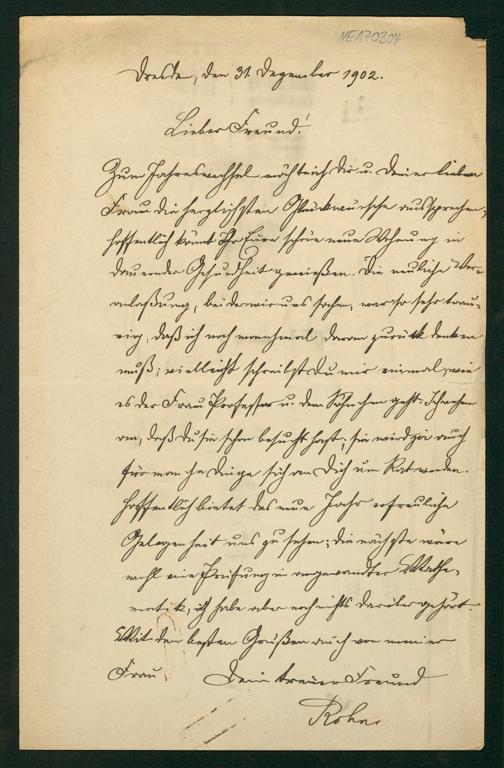 NEA70304
Dresden, den 31 Dezember 1902.
Lieber Freund!
Zum Jahreswechsel möchte ich Dir u. Deiner lieben
Frau die herzlichsten Glückwünsche aussprechen,
hoffentlich könnt Ihr Eure schöne neue Wohnung in
dauernder Gesundheit genießen. Die neuliche Ver-
anlaßung, bei der wir uns sahen, war so sehr trau-
rig, daß ich noch manchmal daran zurück denken
muß; vielleicht schreibst Du mir einmal, wie
es der Frau Professor u. dem Söhnchen geht.
an, daß Du sie schon besucht hast; sie wird ja auch
für manche Dinge sich an Dich um Rat wenden.
Hoffentlich bietet das neue Jahr erfreuliche
Gelegenheit uns zu sehen; die nächste wäre
wohl eine Prüfung in angewandter Mathe-
matik, ich habe aber noch nichts darüber gehört.
Mit den besten Grüßen auch von meiner
Frau Dein treuer Freund
Rohn